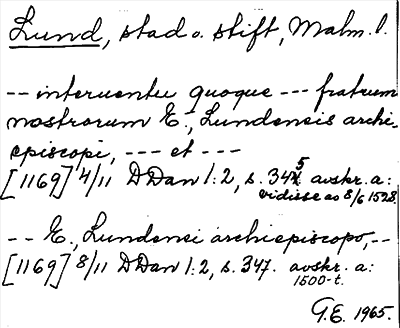 Lund, stad o. stift, Malm. l.
-- interuentu quoque --- fratrum
nostrorum E., Lundensis archi-
episcopi, --- et ---
[1169] 4/11 DDan 1:2, s. 345 avskr. a:
vidisse av 8/6 1528.
-- E., Lundensi archiepiscopo, --
[1169] 8/11 DDan 1:2, s. 347. avskr. a:
1500-t.
G.E. 1965.